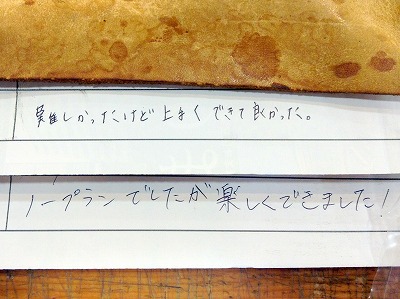 難しかったけど上手くできて良かった。
ノープランでしたが楽しくできました!